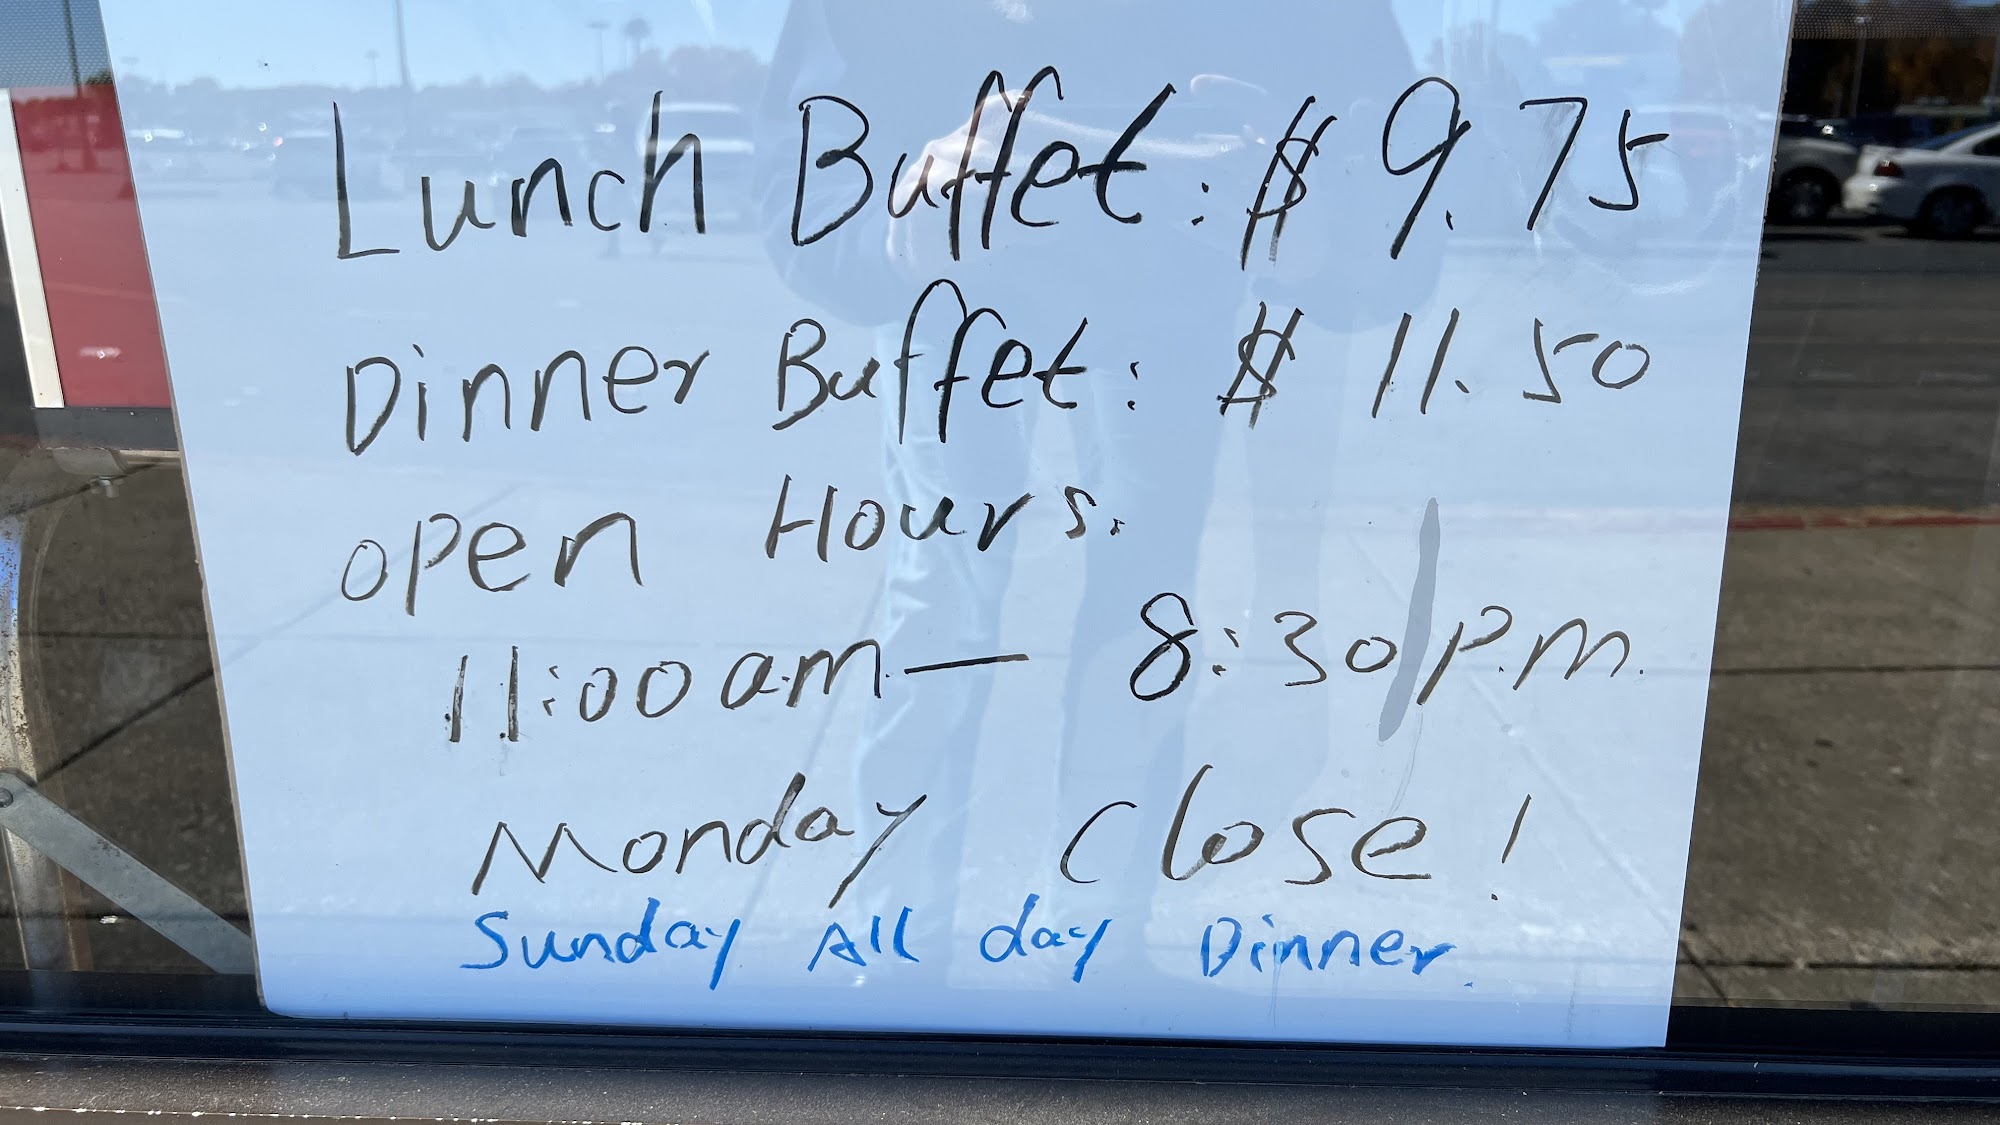 Lunch Buffet: $9.75
Dinner Buffet: $11.50
open Hours:
11:00 a.m. — 8:30 p.m.
Monday Close!
Sunday All day Dinner.